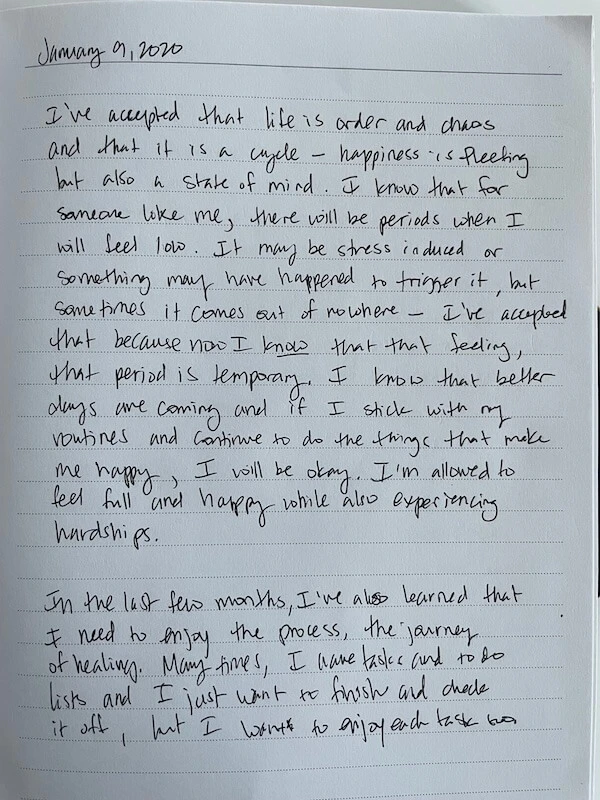 January 9, 2020
I've accepted that life is order and chaos
and that it is a cycle – happiness is fleeting
but also a state of mind. I know that for
someone like me, there will be periods when I
will feel low. It may be stress induced or
something may have happened to trigger it, but
sometimes it comes out of nowhere – I've accepted
that because now I know that that feeling,
that period is temporary. I know that better
days are coming and if I stick with my
routines and continue to do the things that make
me happy, I will be okay. I'm allowed to
feel full and happy while also experiencing
hardships.
In the last few months, I've also learned that
I need to enjoy the process, the journey
of healing. Many times, I have tasks and to do
lists and I just want to finish and check
it off, but I want to enjoy each task too